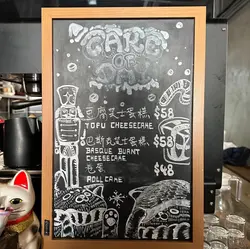 CAKE
OF
豆腐芝士蛋糕 $58
TOFU CHEESECAKE
巴斯克芝士蛋糕 $58
BASQUE BURNT
CHEESECAKE
卷蛋 $48
ROLL CAKE